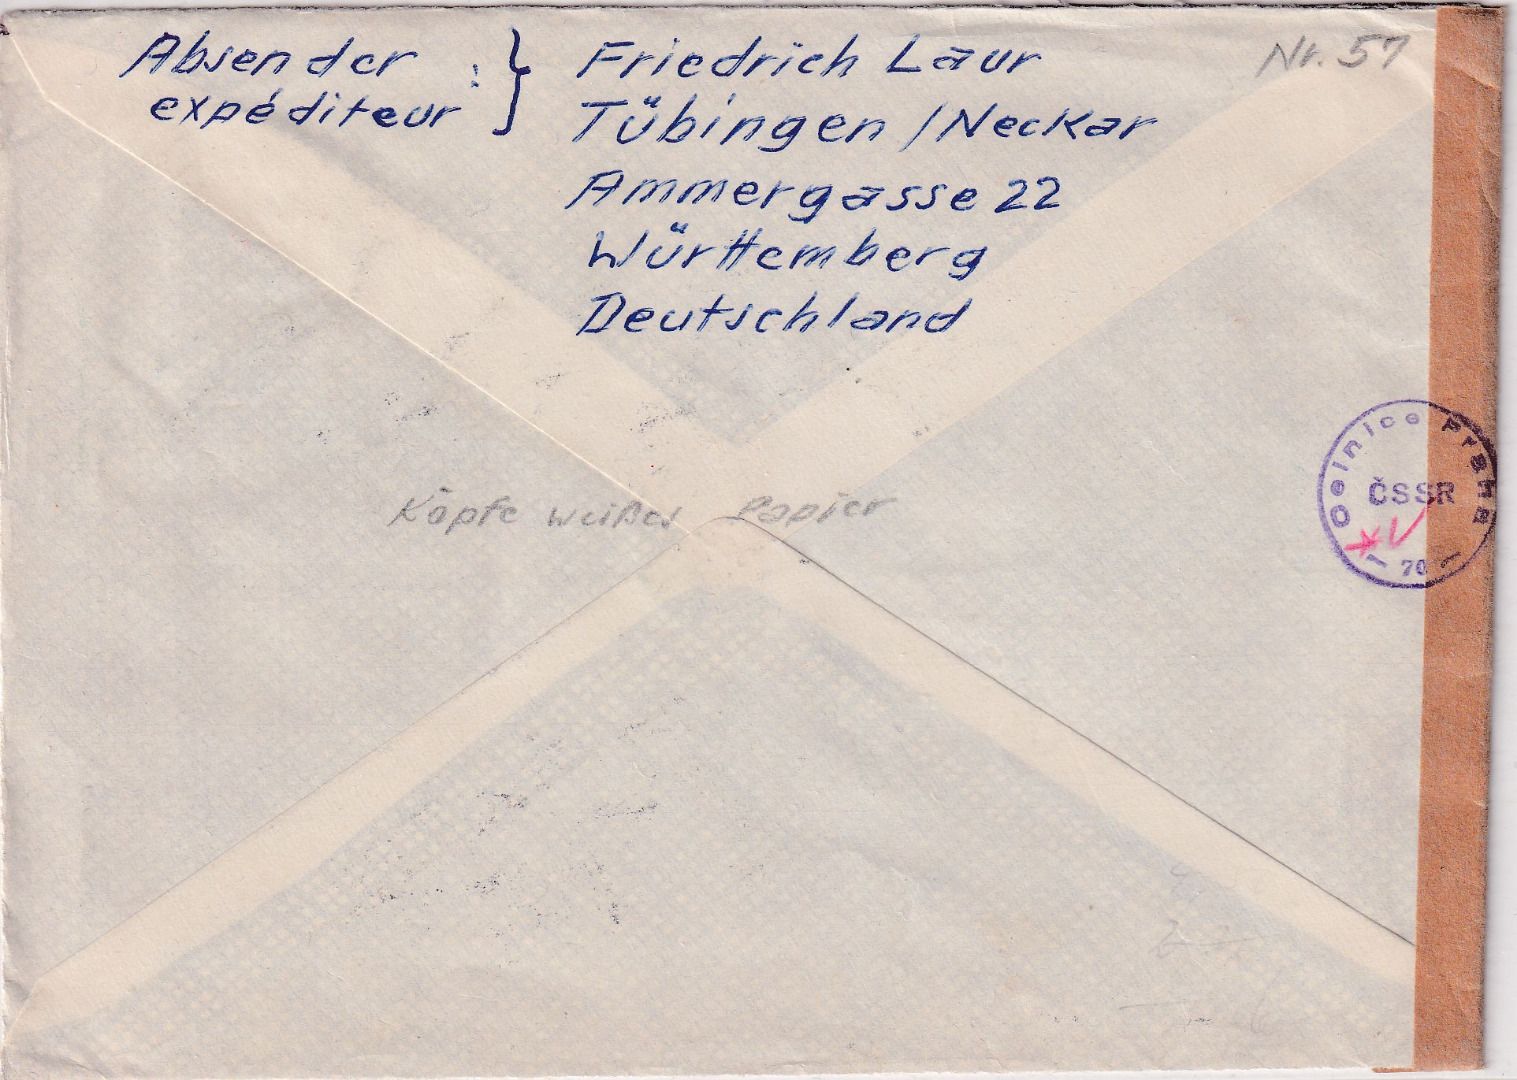 Absender :
expéditeur
Friedrich Laur
Tübingen / Neckar
Ammergasse 22
Württemberg
Deutschland
Nr. 57
Köpfe weißes Papier
Celnice Praha
ČSSR
70